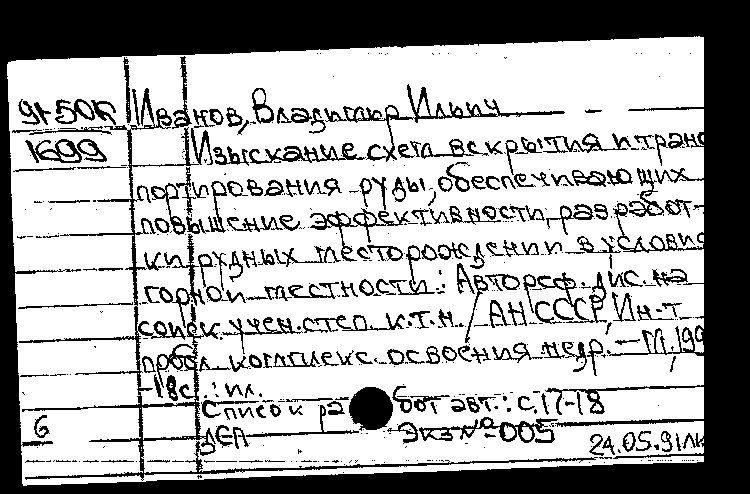 91-50К Иванов, Владимир Ильич
1699 Изыскание схем вскрытия и транс
портирования руды, обеспечивающих
повышение эффективности, разработ-
ки рудных месторождений в услови
горной местности : Автореф. дис. на
соиск. учен. степ. к.т.н. / АН СССР, Ин-т
пробл. комплекс. освоения недр. — М., 199
-18с. : ил.
Список работ авт.: с. 17-18
6 ДСП Экз № 005
24.05.91